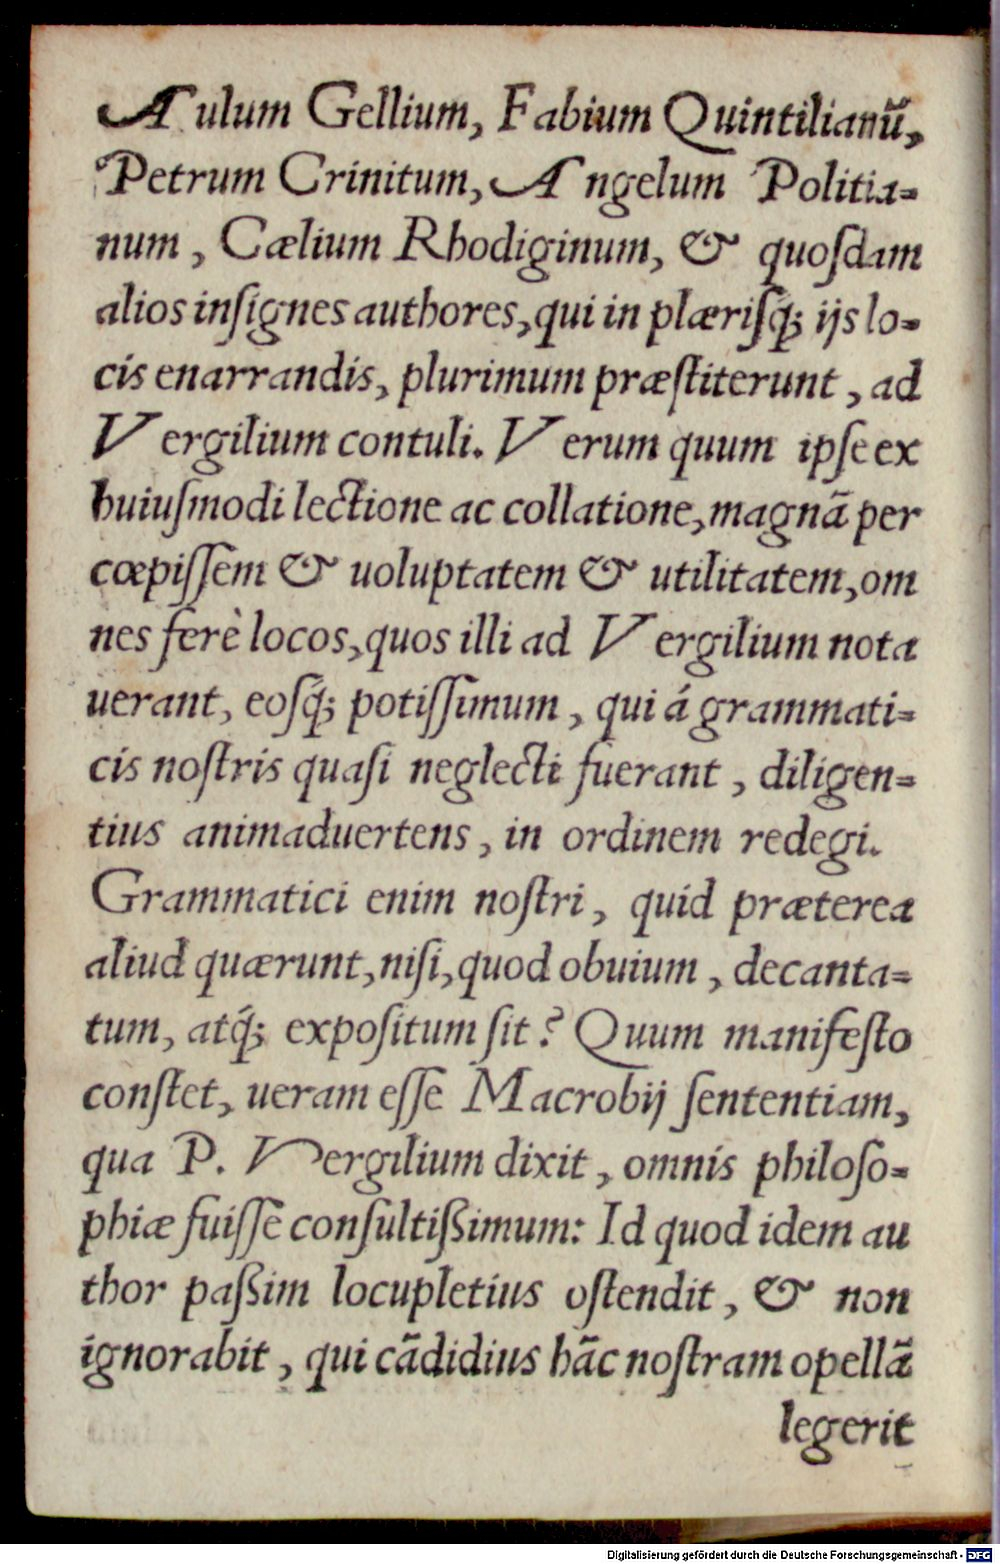 Aulum Gellium, Fabium Quintilianũ,
Petrum Crinitum, Angelum Politia=
num, Cælium Rhodiginum, & quoſdam
alios inſignes authores, qui in plæriſq́; ijs lo=
cis enarrandis, plurimum præſtiterunt, ad
Vergilium contuli. Verum quum ipſe ex
huiuſmodi lectione ac collatione, magnã per
cœpiſſem & uoluptatem & utilitatem, om
nes ferè locos, quos illi ad Vergilium nota
uerant, eoſq́; potiſſimum, qui á grammati=
cis noſtris quaſi neglecti fuerant, diligen=
tius animaduertens, in ordinem redegi.
Grammatici enim noſtri, quid præterea
aliud quærunt, niſi, quod obuium, decanta=
tum, atq́; expoſitum ſit? Quum manifeſto
conſtet, ueram eſſe Macrobij ſententiam,
qua P. Vergilium dixit, omnis philoſo=
phiæ fuiſſe conſultißimum: Id quod idem au
thor paßim locupletius oſtendit, & non
ignorabit, qui cãdidius hãc noſtram opellã
legerit
Digitalisierung gefördert durch die Deutsche Forschungsgemeinschaft - DFG